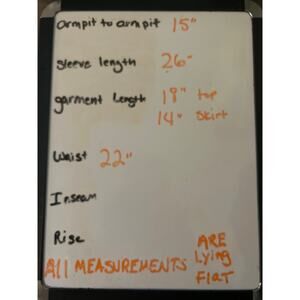 armpit to armpit 15"
sleeve length 26"
garment length 18" top
14" skirt
Waist 22"
Inseam
Rise
All MEASUREMENTS ARE
Lying
Flat